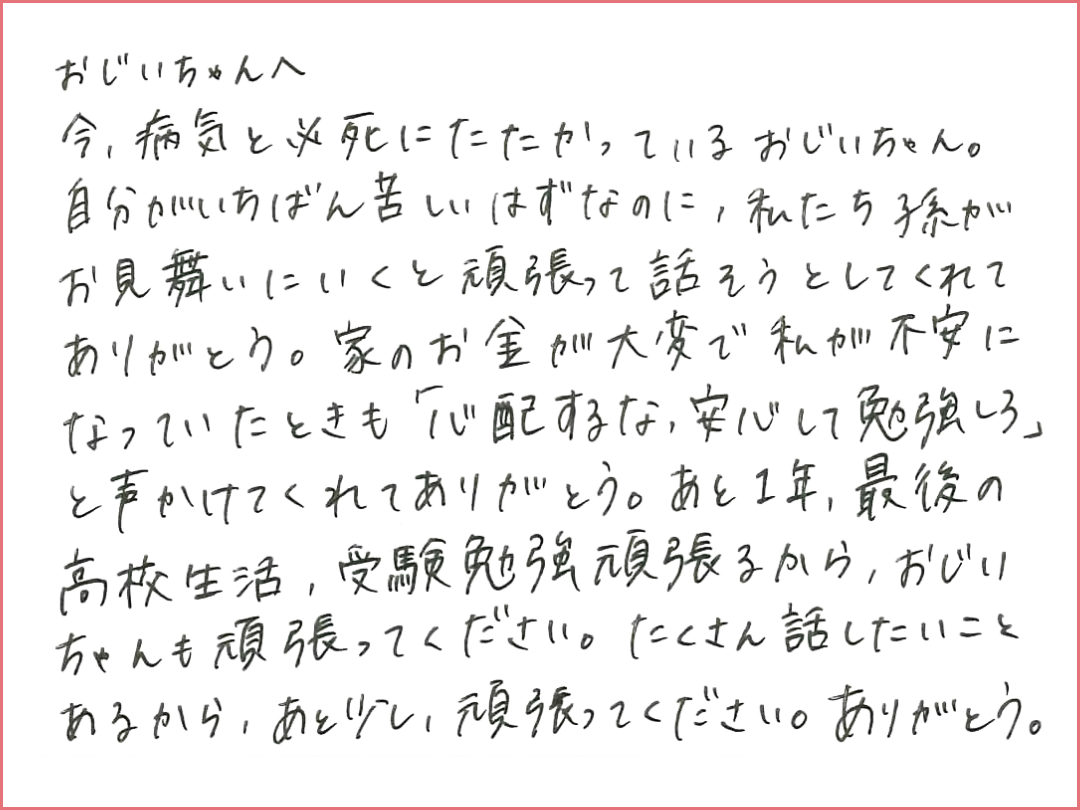 おじいちゃんへ
今,病気と必死にたたかっているおじいちゃん。
自分がいちばん苦しいはずなのに,私たち孫が
お見舞いにいくと頑張って話そうとしてくれて
ありがとう。家のお金が大変で私が不安に
なっていたときも「心配するな,安心して勉強しろ」
と声かけてくれてありがとう。あと1年,最後の
高校生活,受験勉強頑張るから,おじい
ちゃんも頑張ってください。たくさん話したいこと
あるから,あと少し,頑張ってください。ありがとう。